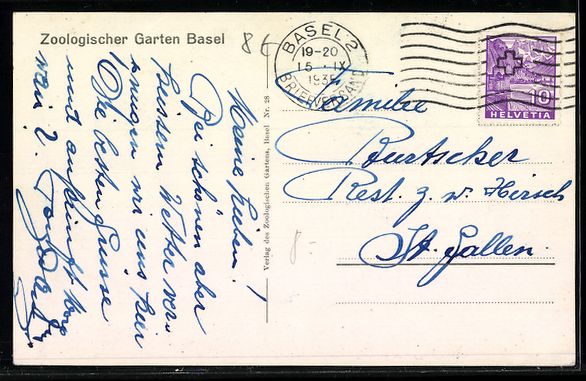 Zoologischer Garten Basel
8 €
BASEL 2
19-20
15. IX
1935
BRIEFVERSAND
10
HELVETIA
Meine Lieben!
Bei schönen aber
heissem Wetter ver-
amüsen wir uns hier
Die besten Grüsse
und auf
Verlag des Zoologischen Gartens, Basel Nr. 28
8.-
Familie
Burtscher
Rest. z. w. Hirsch
St. Gallen.